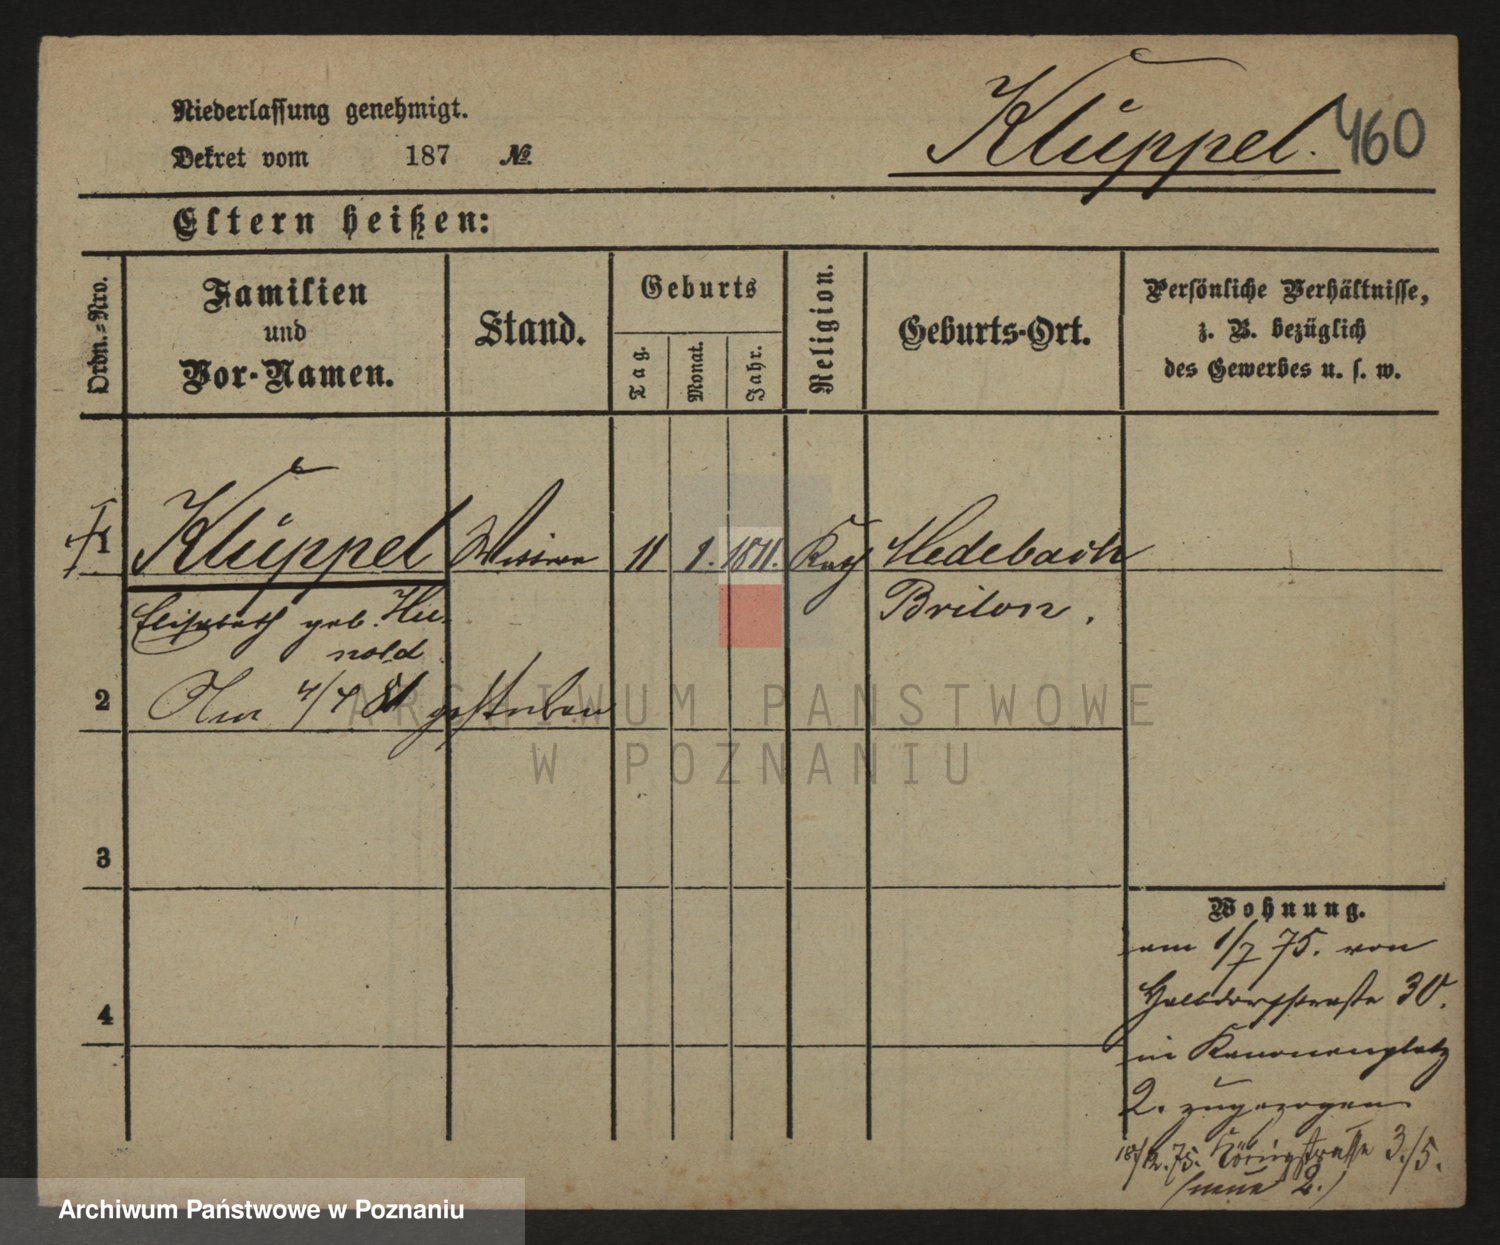 Niederlassung genehmigt.
Dekret vom 187 №
Klüppel. 460
Eltern heißen:
Ordn.-Nro.
Familien
und
Vor-Namen.
Stand.
Geburts
Tag.
Monat.
Jahr.
Religion.
Geburts-Ort.
Persönliche Verhältnisse,
z. B. bezüglich
des Gewerbes u. s. w.
1 Klüppel Wittwe 11 1. 1811. Kath Medebach
Elisabeth geb. Hu- Brilon.
nold
2 Am 4/4 81 gestorben
ARCHIWUM PAŃSTWOWE
W POZNANIU
3
4
Wohnung.
am 1/7 75. von
Halbdorfstraße 30.
in Kanonenplatz
2. zugezogen
18/12. 75. Königstraße 3./5.
(neue 2.)
Archiwum Państwowe w Poznaniu